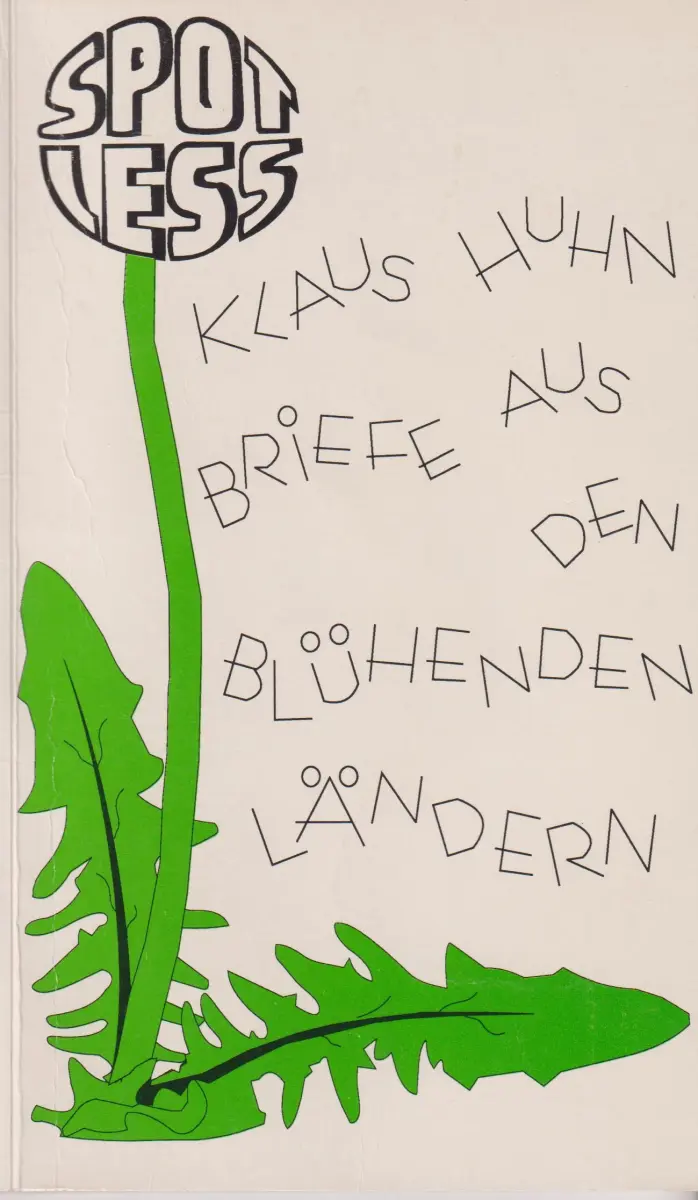 SPOT
LESS
KLAUS HUHN
BRIEFE AUS
DEN
BLÜHENDEN
LÄNDERN